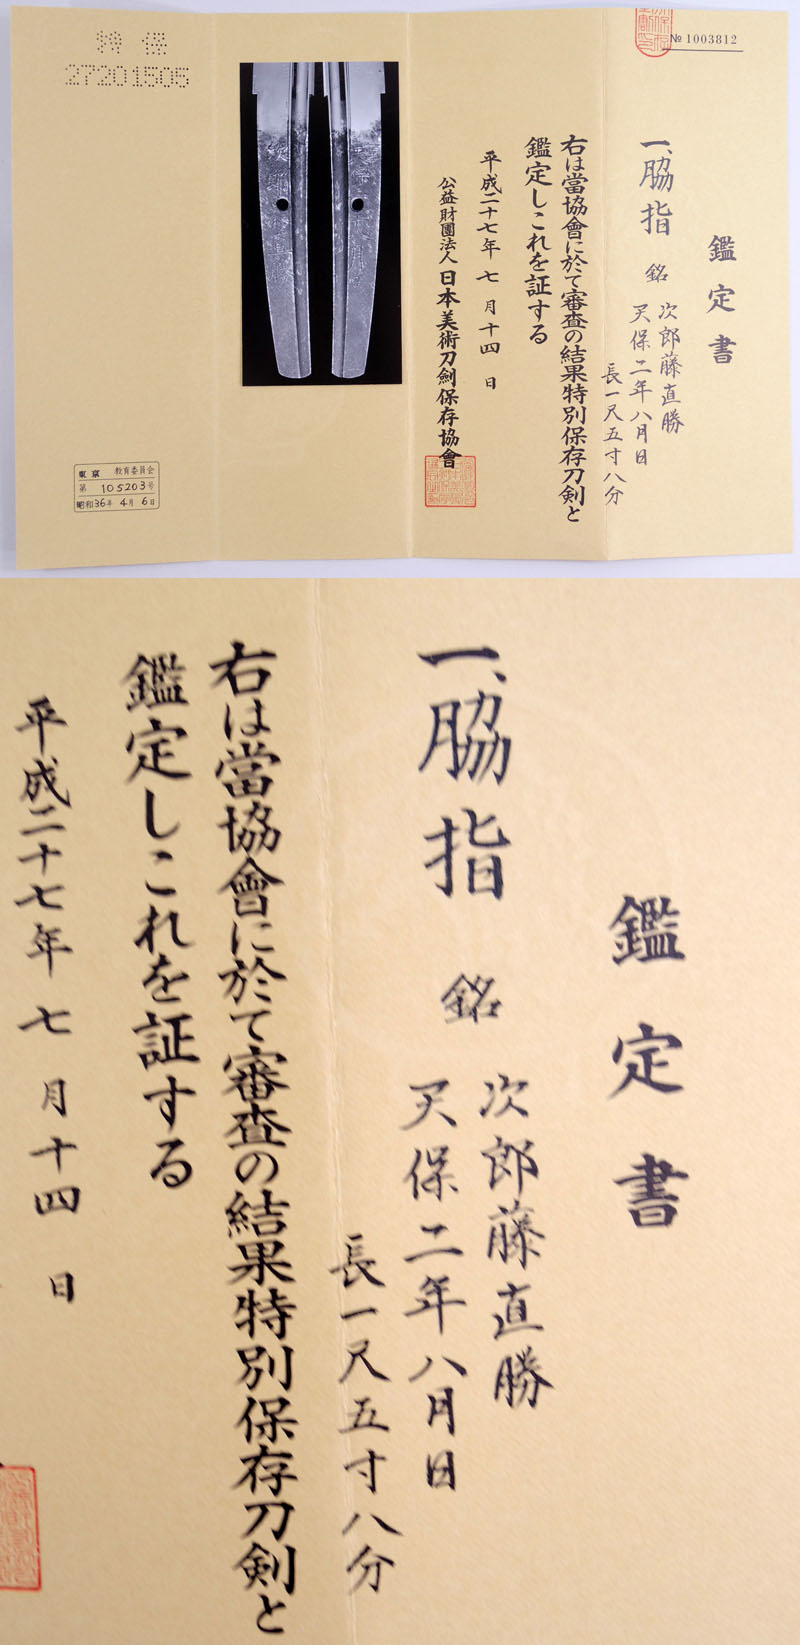 № 1003812
鑑定書
一、脇指 銘 次郎藤直勝
天保二年八月日
長一尺五寸八分
右は當協會に於て審査の結果特別保存刀剣と
鑑定しこれを証する
平成二十七年 七 月 十四 日
公益財團法人 日本美術刀劍保存協會
特 保
27201505
東京 教育委員会
第 105203号
昭和36年 4月 6日
鑑定書
一、脇指 銘 次郎藤直勝
天保二年八月日
長一尺五寸八分
右は當協會に於て審査の結果特別保存刀剣と
鑑定しこれを証する
平成二十七年 七 月 十四 日